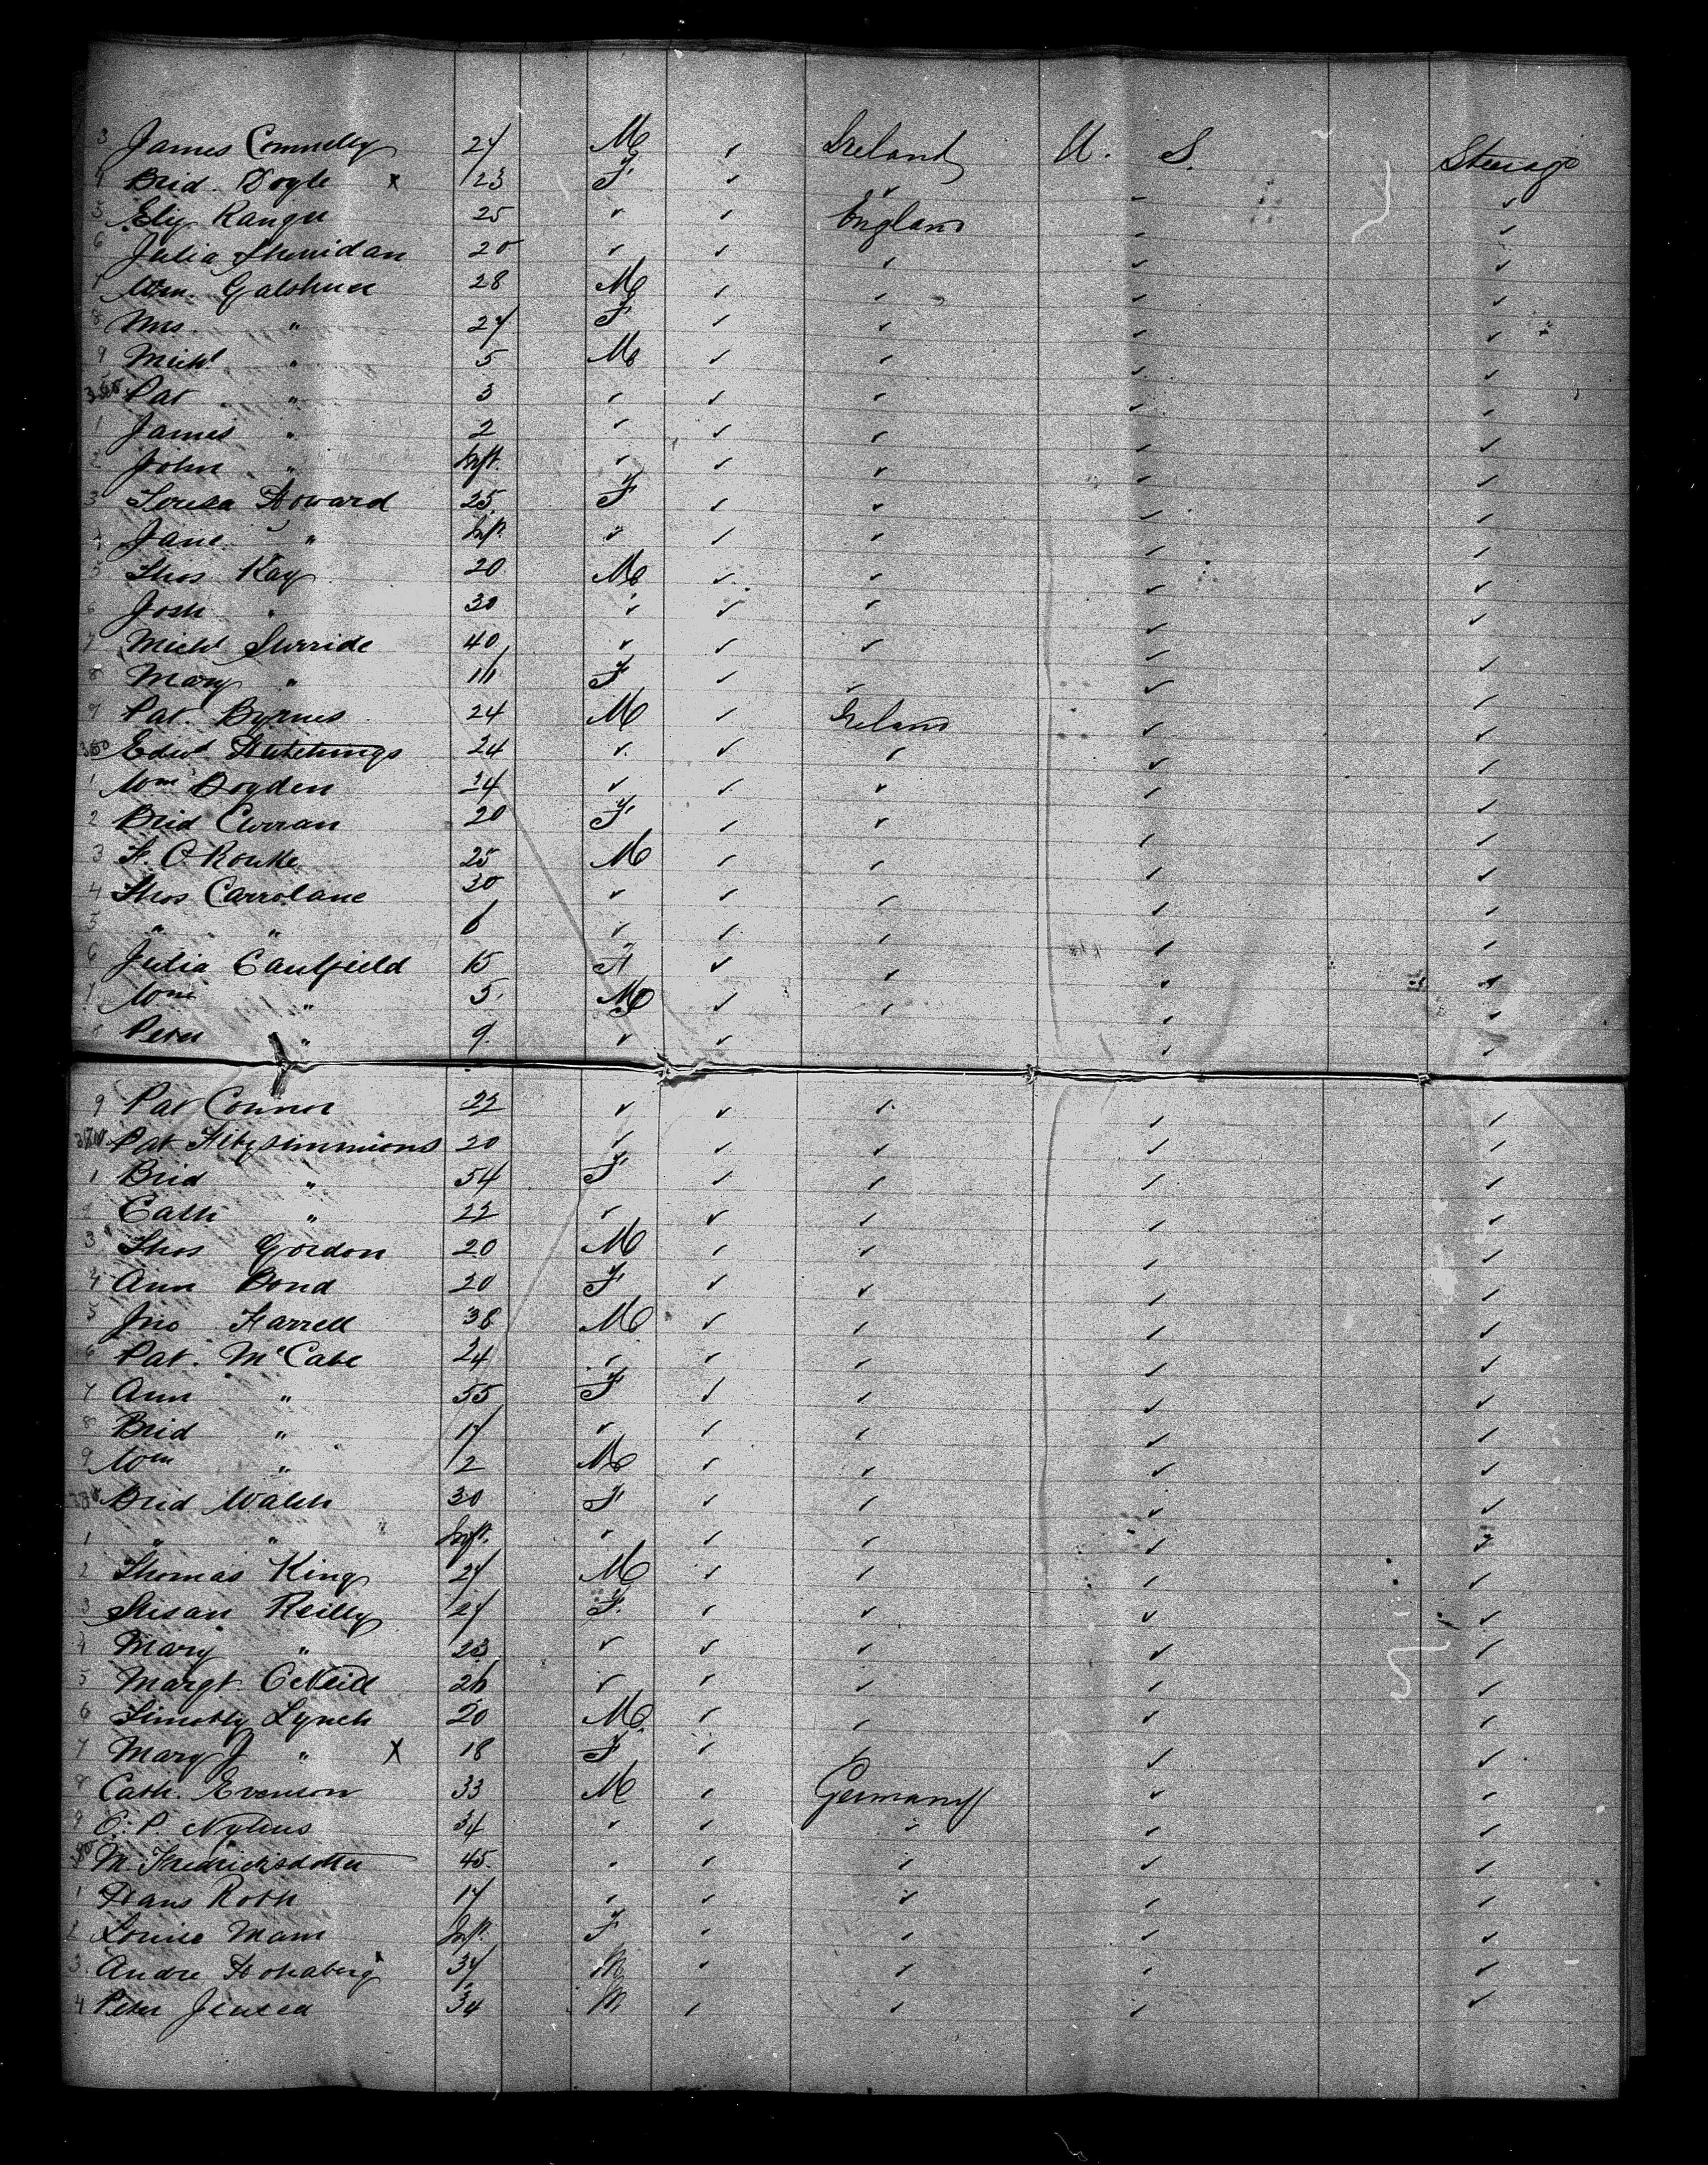 3 James Connelly 27 M ✓ Ireland U. S. Steerage
4 Brid. Doyle x 23 F ✓ ✓ ✓ ✓
5 Eliz Ranger 25 ✓ ✓ England ✓ ✓
6 Julia Sheridan 20 ✓ ✓ ✓ ✓ ✓
7 Wm. 28 M ✓ ✓ ✓ ✓
8 Mrs. " 27 F ✓ ✓ ✓ ✓
9 Michl " 5 M ✓ ✓ ✓ ✓
350 Pat " 3 ✓ ✓ ✓ ✓ ✓
1 James " 2 ✓ ✓ ✓ ✓ ✓
2 John " Inft. ✓ ✓ ✓ ✓ ✓
3 Teresa Howard 25 F ✓ ✓ ✓ ✓
4 Jane " Inft. " ✓ ✓ ✓ ✓
5 Thos Kay 20 M ✓ ✓ ✓ ✓
6 Josh " 30 ✓ ✓ ✓ ✓ ✓
7 Michl 40 ✓ ✓ ✓ ✓ ✓
8 Mary " 11 F ✓ ✓ ✓ ✓
9 Pat. Byrnes 24 M ✓ Ireland ✓ ✓
360 Edwd Hutchings 24 ✓ ✓ ✓ ✓ ✓
1 Wm Dogden 24 ✓ ✓ ✓ ✓ ✓
2 Brid Curran 20 F ✓ ✓ ✓ ✓
3 F. O Rourke 25 M ✓ ✓ ✓ ✓
4 Thos Carrolane 30 ✓ ✓ ✓ ✓ ✓
5 " " 6 ✓ ✓ ✓ ✓ ✓
6 Julia Caulfield 15 F ✓ ✓ ✓ ✓
7 Wm " 5 M ✓ ✓ ✓ ✓
8 Peter " 9 ✓ ✓ ✓ ✓
9 Pat Connor 22 ✓ ✓ ✓ ✓ ✓
370 Pat Fitzsimmions 20 ✓ ✓ ✓ ✓ ✓
1 Brid " 54 F ✓ ✓ ✓ ✓
2 Cath " 22 ✓ ✓ ✓ ✓ ✓
3 Thos Gordon 20 M ✓ ✓ ✓ ✓
4 Ann Bond 20 F ✓ ✓ ✓ ✓
5 Jno Farrell 38 M ✓ ✓ ✓ ✓
6 Pat. McCabe 24 ✓ ✓ ✓ ✓ ✓
7 Ann " 55 F ✓ ✓ ✓ ✓
8 Brid " 17 ✓ ✓ ✓ ✓ ✓
9 Wm " 2 M ✓ ✓ ✓ ✓
380 Brid Walsh 30 F ✓ ✓ ✓ ✓
1 " " Inft. ✓ ✓ ✓ ✓ ✓
2 Thomas King 27 M ✓ ✓ ✓ ✓
3 Susan Reilly 27 F. ✓ ✓ ✓ ✓
4 Mary " 23 ✓ ✓ ✓ ✓ ✓
5 Margt. O'Neill 26 ✓ ✓ ✓ ✓ ✓
6 Timothy Lynch 20 M ✓ ✓ ✓ ✓
7 Mary J " X 18 F ✓ ✓ ✓ ✓
8 Cath. Evenson 33 M ✓ Germany ✓ ✓
9 C. P. Nylens 34 ✓ ✓ ✓ ✓ ✓
M. Fredricksdotter 45 ✓ ✓ ✓ ✓ ✓
1 Hans Roth 17 ✓ ✓ ✓ ✓ ✓
2 Louise Mam Inft. F ✓ ✓ ✓ ✓
3. Andre 37 M ✓ ✓ ✓ ✓
4 Peter Jensen 34 M ✓ ✓ ✓ ✓